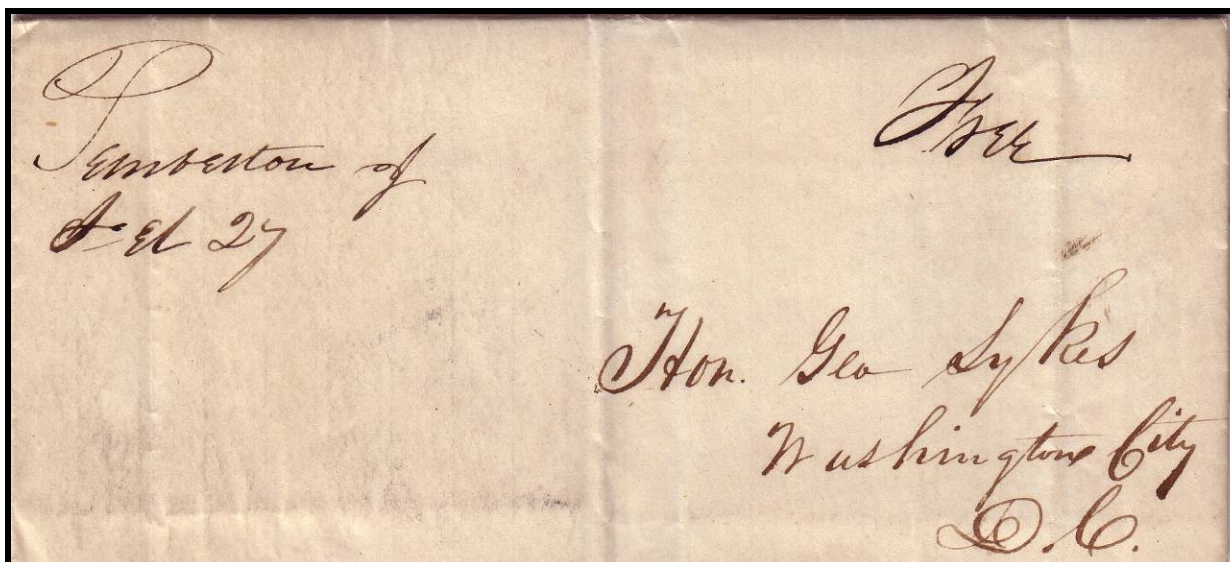 Pemberton NJ
Feb 27
Free
Hon. Geo Sykes
Washington City
D. C.